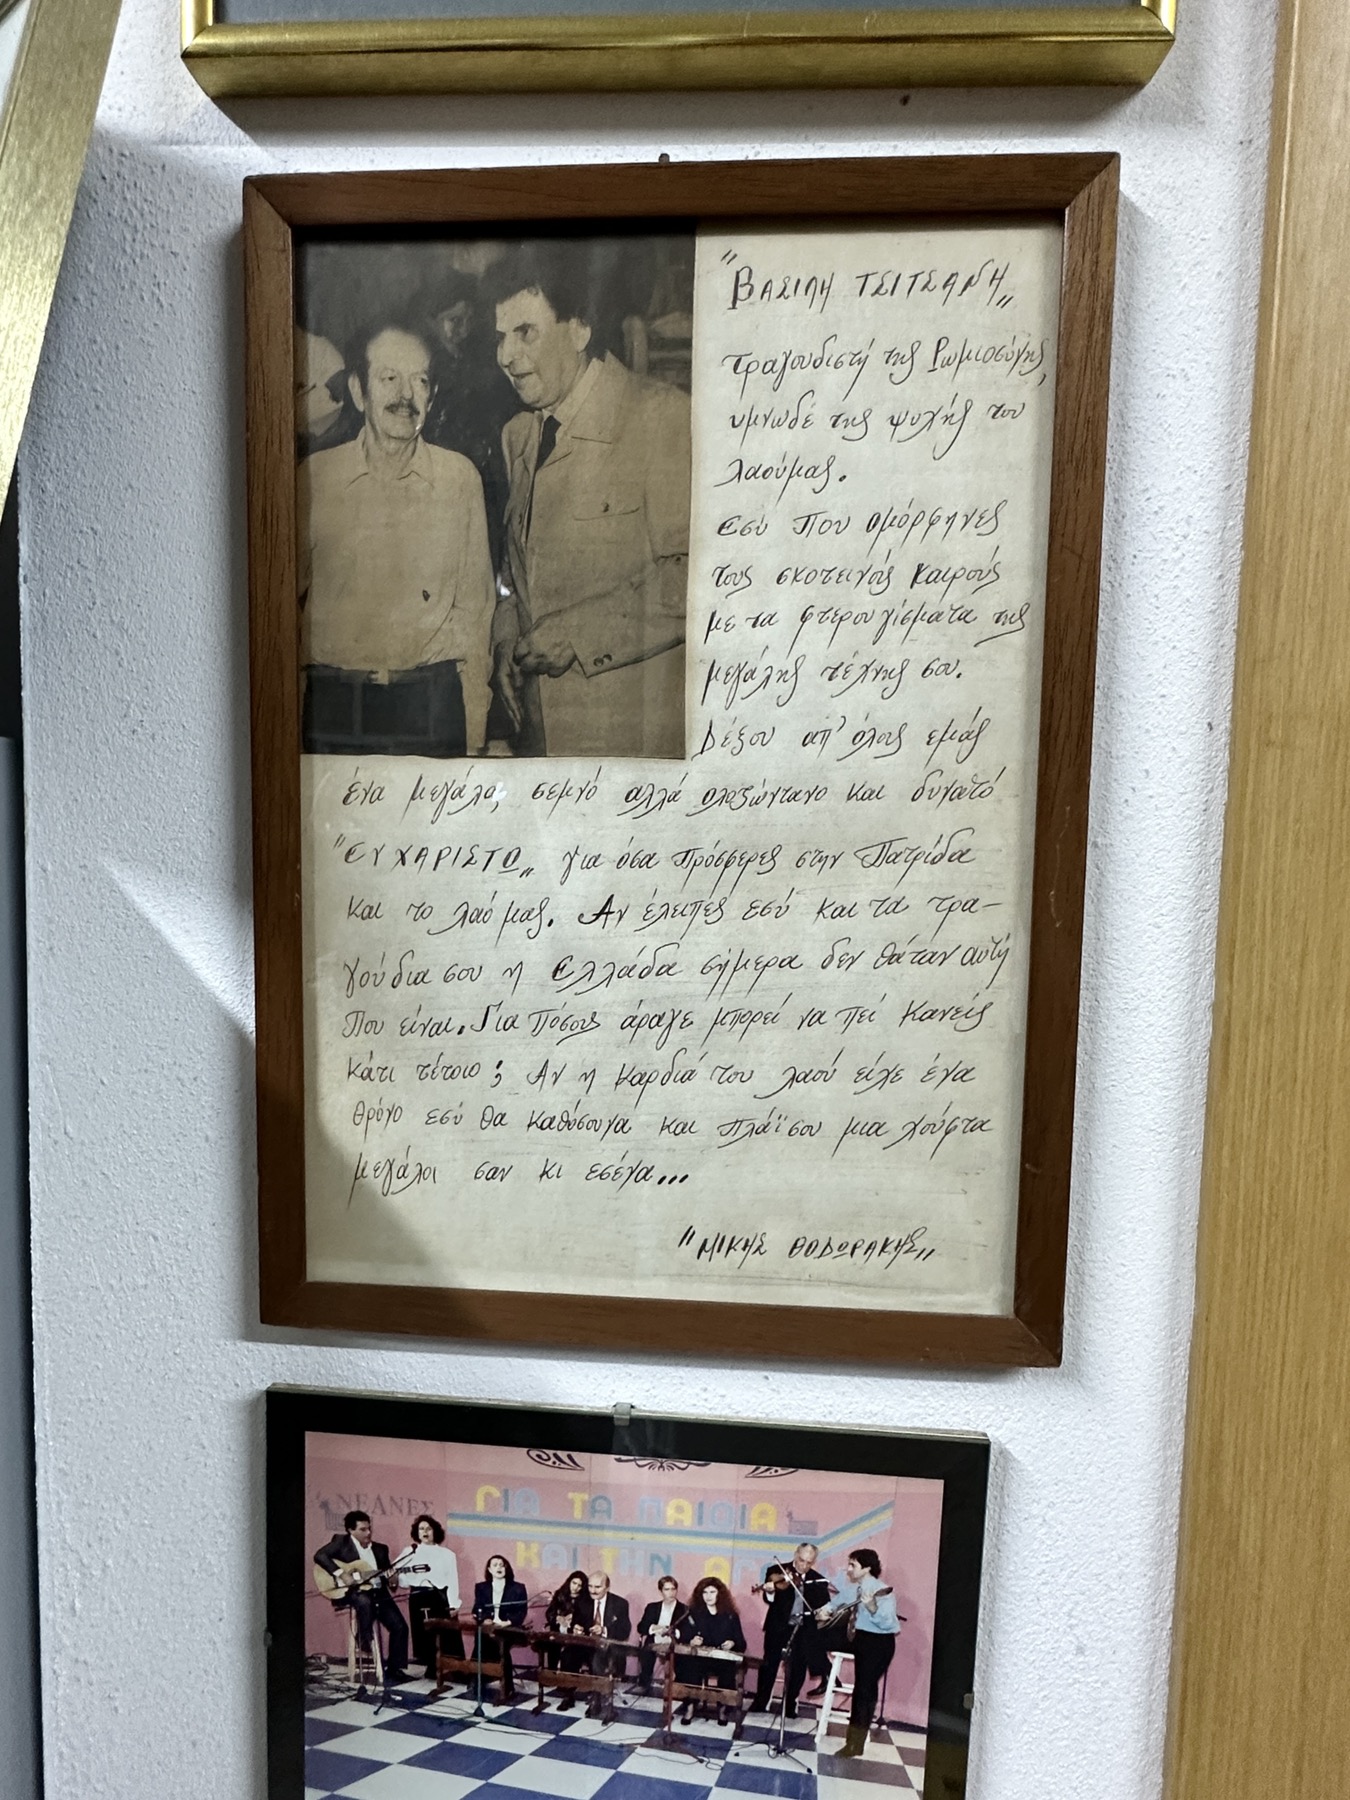 "ΒΑΣΙΛΗ ΤΣΙΤΣΑΝΗ„
τραγουδιστή της Ρωμιοσύνης,
υμνωδέ της ψυχής του
λαού μας.
Εσύ που ομόρφηνες
τους σκοτεινούς καιρούς
με τα φτερουγίσματα της
μεγάλης τέχνης σου.
Δέξου απ' όλους εμάς
ένα μεγάλο, σεμνό αλλά ολοζώντανο και δυνατό
"ΕΥΧΑΡΙΣΤΩ„ για όσα πρόσφερες στην Πατρίδα
και το λαό μας. Αν έλειπες εσύ και τα τρα-
γούδια σου η Ελλάδα σήμερα δεν θάταν αυτή
που είναι. Για πόσους άραγε μπορεί να πεί κανείς
κάτι τέτοιο; Αν η καρδιά του λαού είχε ένα
θρόνο εσύ θα καθόσουνα και πλάϊ σου μια χούφτα
μεγάλοι σαν κι εσένα...
"ΜΙΚΗΣ ΘΟΔΩΡΑΚΗΣ„
ΝΕΑΝΕΣ
ΓΙΑ ΤΑ ΠΑΙΔΙΑ
ΚΑΙ ΤΗΝ